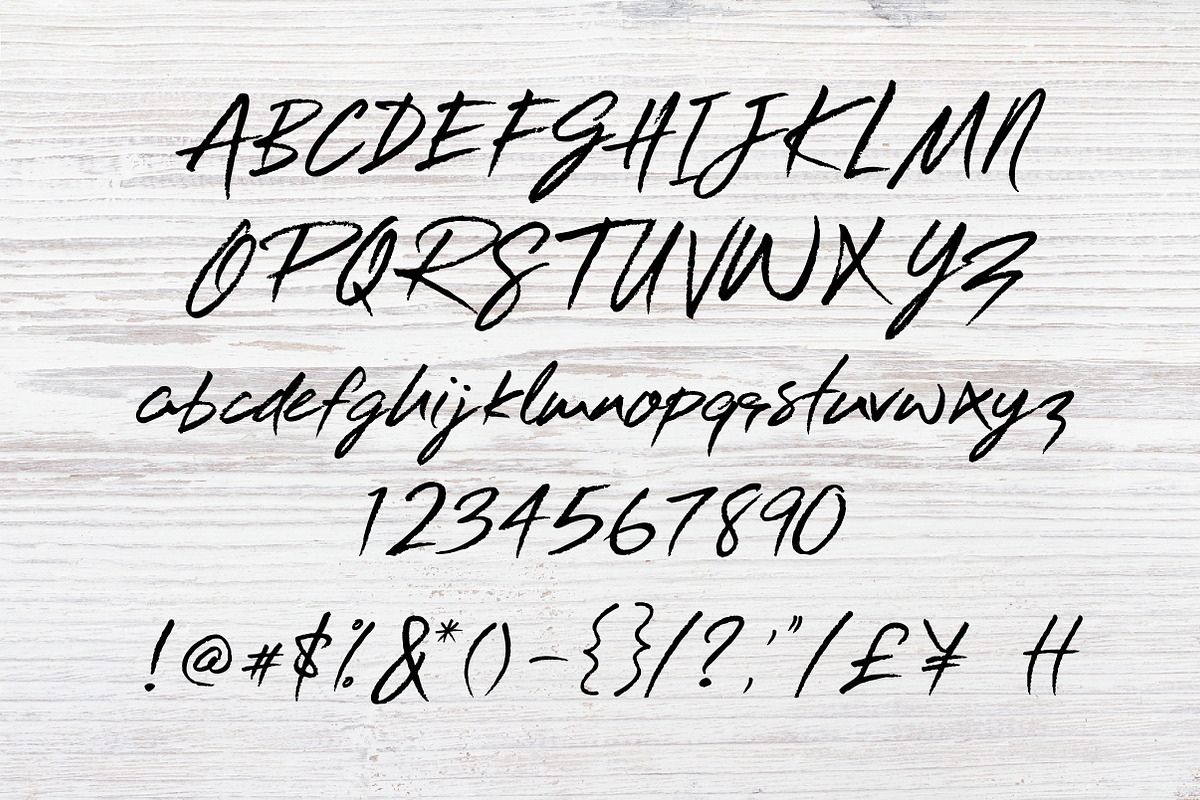 ABCDEFGHIJKLMN
OPQRSTUVWXYZ
abcdefghijklmnopqrstuvwxyz
1234567890
!@#$%&*()-{}/?,'"/£¥